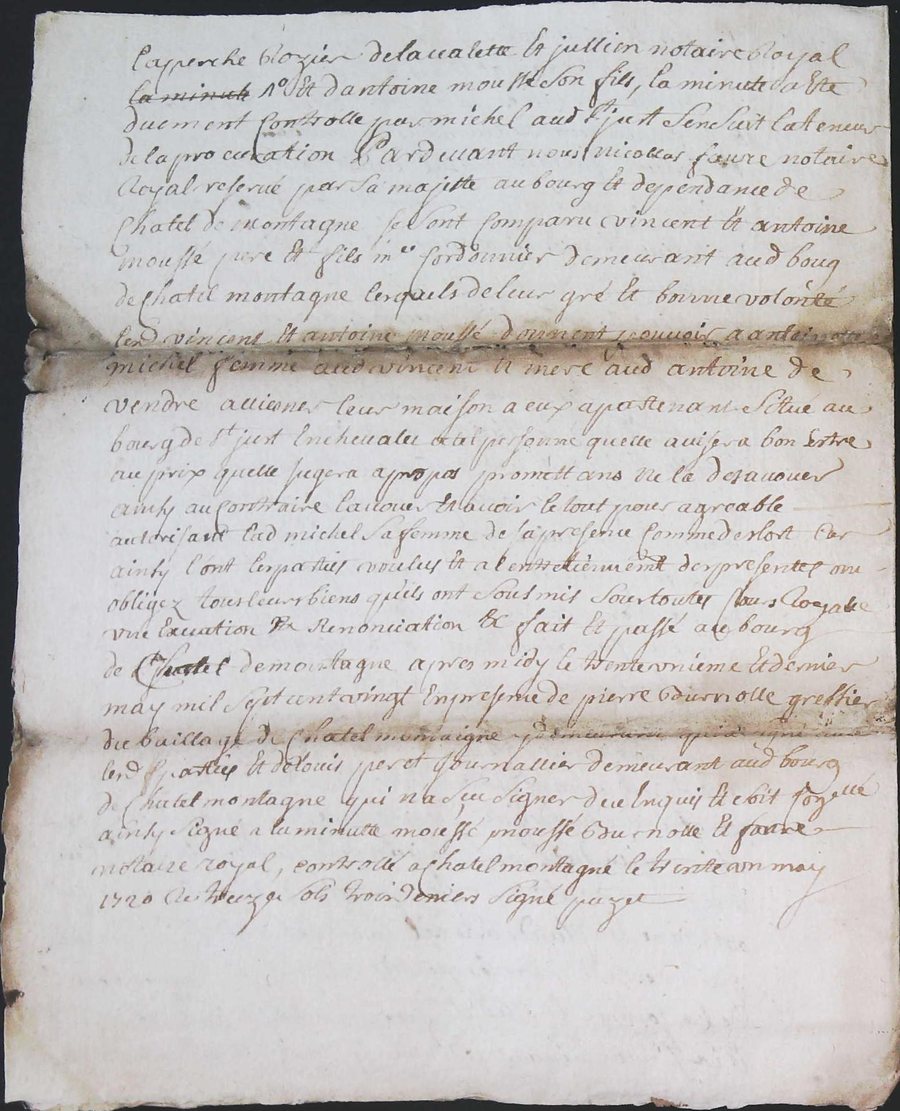 laperche Rozier delavalette Et jullien notaire Royal
la minute 1° Et dantoine moussé Son fils, la minute a Esté
duement Controllé par michel aud St just Sensuit la teneur
de la procuration Pardevant nous nicollas faure notaire
Royal reservé par Sa majesté au bourg Et dependance de
Chatel de montagne Se Sont Comparu vincent Et antoine
moussé pere Et fils me Cordonnier demeurant aud bourg
de Chatel montagne lesquels de leur gré Et bonne volonté
lesd vincens Et antoine moussé donnent pouvoir a
michel femme aud vincent Et mere aud antoine de
vendre alliener leur maison a eux apartenant Situé au
bourg de St just Enchevalet a tel personne quelle avisera bon Estre
au prix quelle jugera apropos promettans ne la desavouer
ainsy au Contraire lavouer Et avoir le tout pour agreable
autorisant lad michel Sa femme de Sa presence Comme de sort Car
ainsy l'ont les parties voulus Et a lentretiennement des presentes ont
obligez tous leurs biens qu'ils ont Sousmis Sour toutes Cours Royalle
une Execution &c Renonciation &c fait Et passé au bourg
de Chatel demontagne apres midy le trente unieme Et dernier
may mil Sept cent vingt En presence de pierre Bournolle greffier
du baillage de Chatel montaigne y demeurant qui a signé avec
lesd parties Et de louis peret Journallier demeurant aud bourg
de Chatel montagne qui n'a Sçu Signer de ce Enquis Et Soit Scellé
ainsy Signé a la minutte moussé, moussé Bournolle Et faure
notaire royal, controllé a Chatel montagné le trente un may
1720 Re treize Sols trois deniers Signé puzet